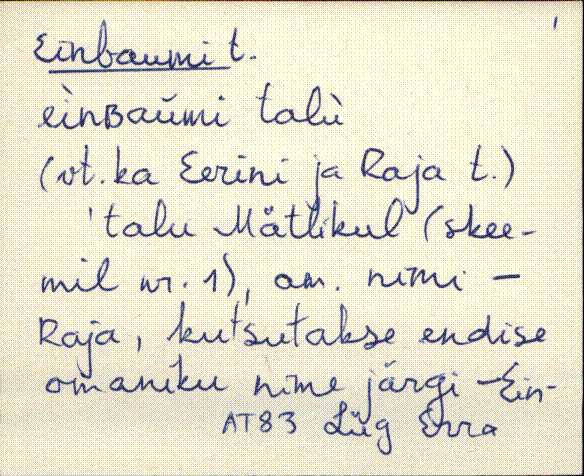 Einbaumi t.
èinʙaŭmi talù
(vt. ka Eerini ja Raja t.)
'talu Mätlikul (skee-
mil nr. 1), am. nimi –
Raja, kutsutakse endise
omaniku nime järgi – Ein-
AT83 Lüg Erra